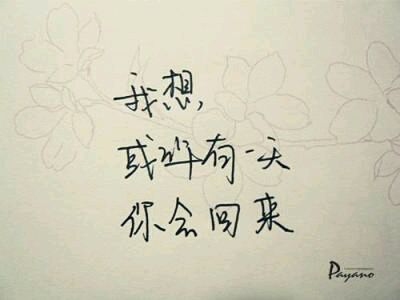 我想,
或许有一天
你会回来
Payano